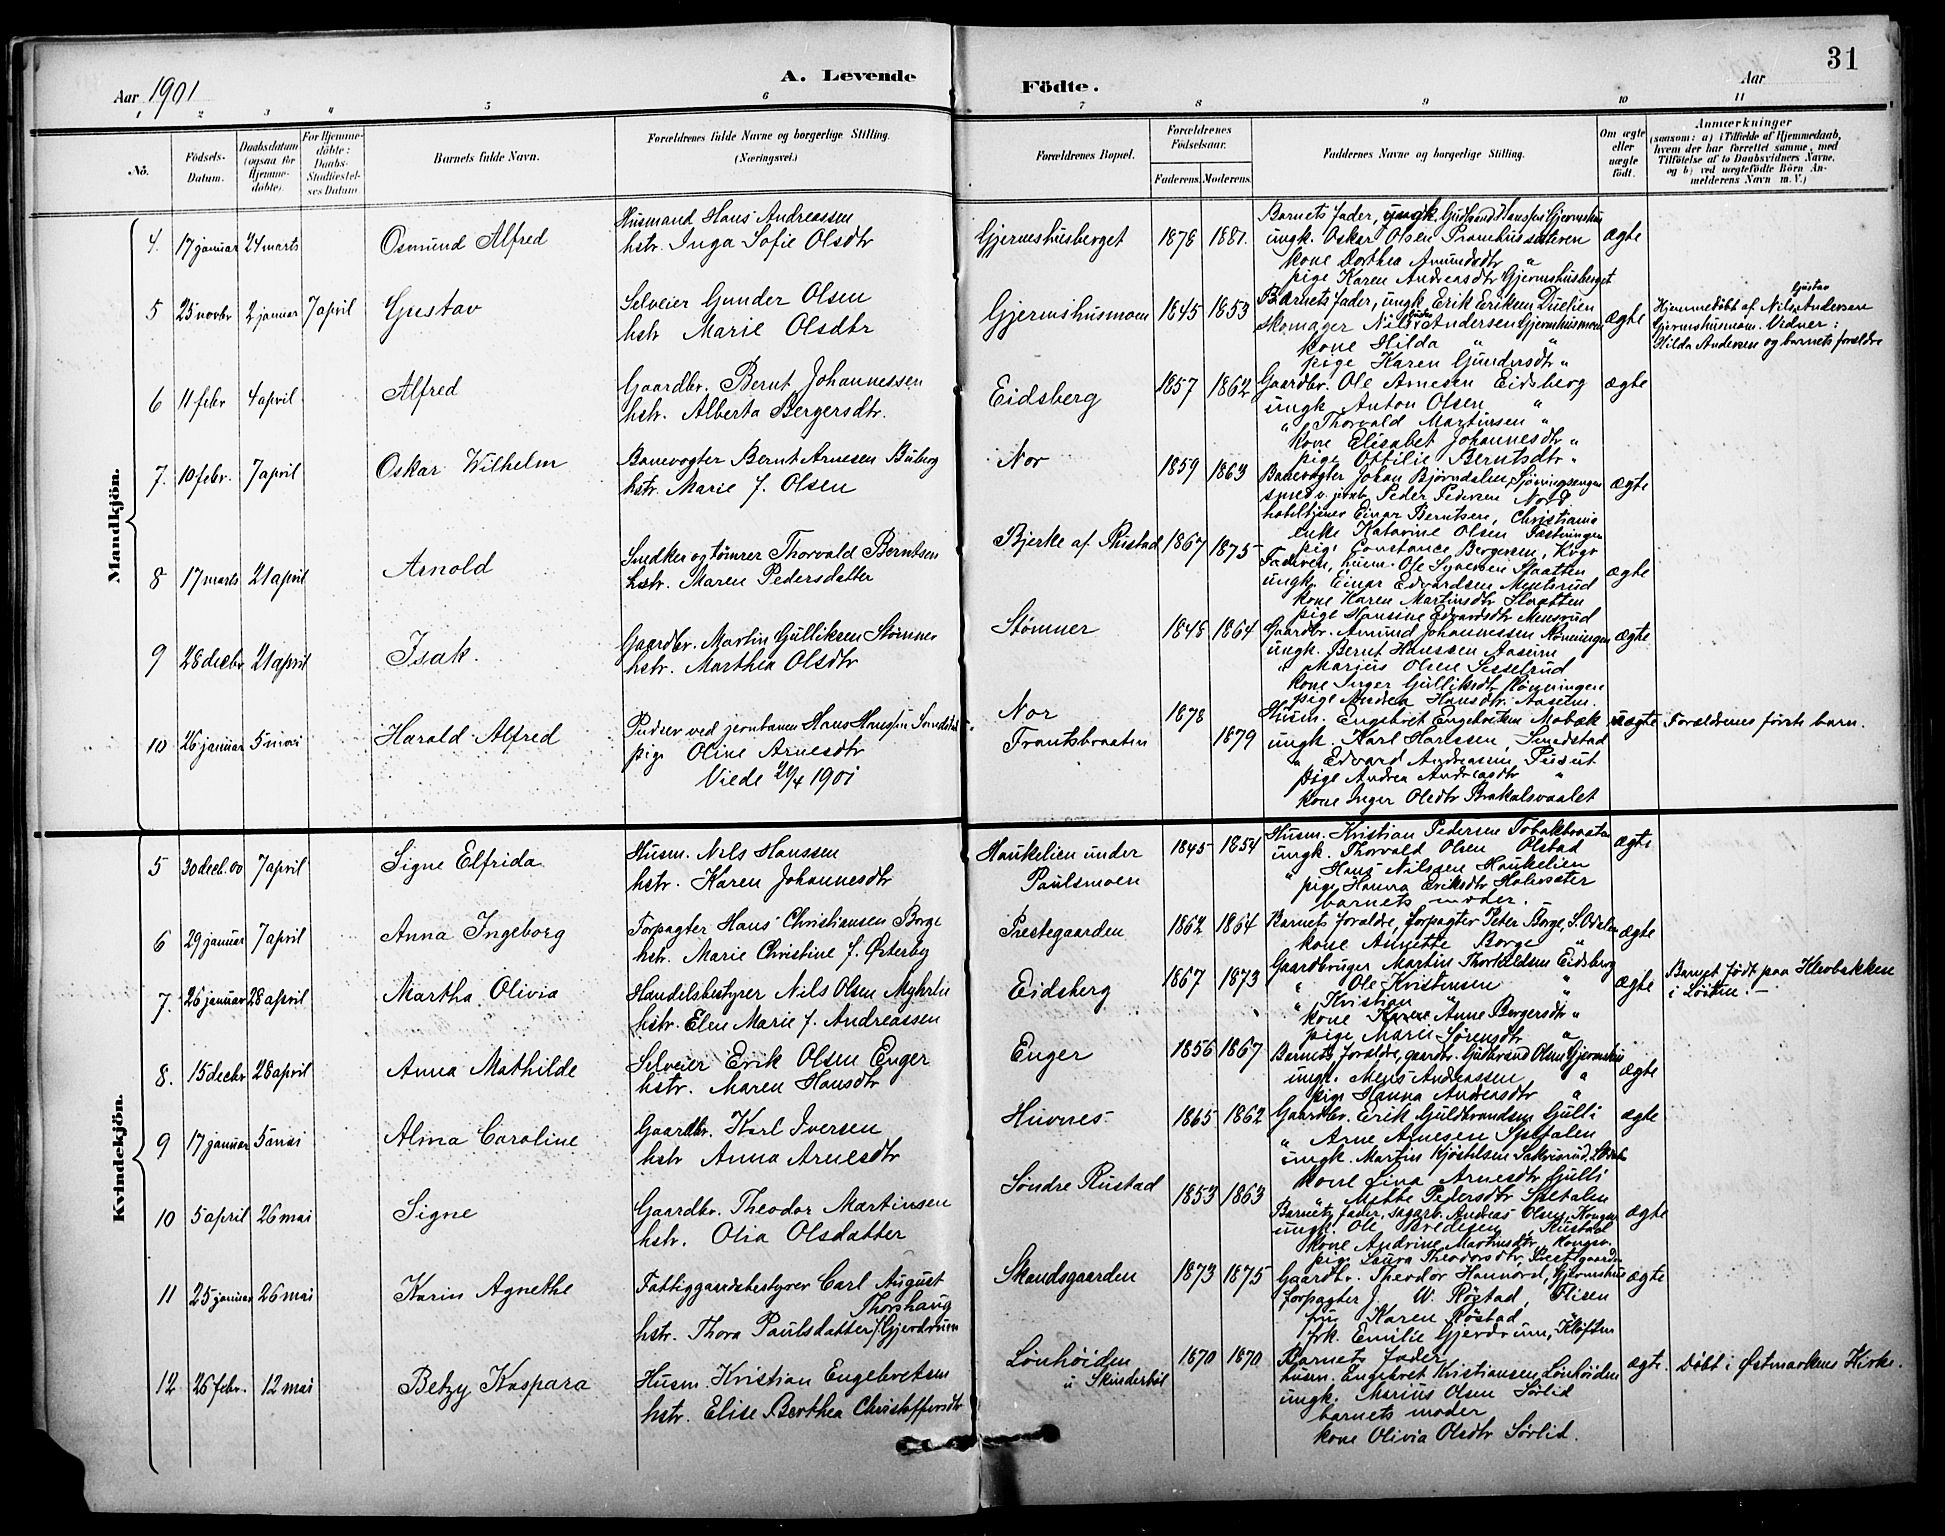 31
Aar 1901
A. Levende Födte.
Aar
1 2 3 4 5 6 7 8 9 10 11
No.
Födsels-Datum.
Daabsdatum (ogsaa for Hjemmedöbte).
For Hjemmedöbte: Daabs-Stadfæstelses Datum
Barnets fulde Navn.
Forældrenes fulde Navne og borgerlige Stilling. (Næringsvei.)
Forældrenes Bopæl.
Forældrenes Födselsaar.
Faderens. Moderens.
Faddernes Navne og borgerlige Stilling.
Om ægte eller uægte födt.
Anmærkninger
(saasom: a) i Tilfælde af Hjemmedaab, hvem der har forrettet samme, med Tilföielse af to Daabsvidners Navne, og b) ved uægtefödte Börn Anmelderens Navn m. V.)
Mandkjön.
4. 17 januar 24 marts Osmund Alfred
Husmand Hans Andreassen
hstr. Inga Sofie Olsdtr
Gjermshusberget 1878 1881.
Barnets fader, ungk.
ungk. Oskar Olsen
kone Dorthea Amundsdtr "
pige Karen Andreasdtr Gjermshusberget
ægte
5 25 novbr 2 januar 7 april Gustav
Selveier Gunder Olsen
hstr Marie Olsdtr
Gjermshusmoen 1845 1853
Barnets fader, ungk. Erik Eriksen
skomager Nils Andersen Gjermshusmoen
kone Hilda " "
pige Karen Gundersdtr "
ægte
Hjemmedøbt af Nils Gustav Andersen
Gjermshusmoen. Vidner:
Hilda Andersen og barnets forældre
6 11 febr 4 april Alfred
Gaardbr. Bernt Johannessen
hstr. Alberta Bergersdtr.
Eidsberg 1857 1862
Gaardbr. Ole Arnesen Eidsberg
ungk Anton Olsen "
" Thorvald Martinsen "
kone Elisabet Johannesdtr "
pige Ottilie Berntsdtr "
ægte
7. 10 febr. 7 april Oskar Wilhelm
Banevogter Bernt Arnesen
hstr. Marie f. Olsen
Nor 1859 1863
Banevogter Johan Bjørndalen,
smed v. jernb. Peder Pedersen Nord
Einar Berntsen, Christiania
enke Katarine Olsen
pige Constance Bergersen,
ægte
8 17 marts 21 april Arnold
Snedker og tømrer Thorvald Berntsen
hstr. Maren Pedersdatter
Bjerke af Rustad 1867 1875
Faderen, husm. Ole Syversen Slaatten
ungk. Einar Edvardsen
kone Karen Martinsdtr Slaatten
pige Hansine Edvardsdtr
ægte
9 28 decbr 21 april Isak.
Gaardbr. Martin Gulliksen Stømner
hstr. Marthea Olsdtr
Stømner 1848 1864
Gaardbr. Amund Johannessen
ungk. Bernt Hanssen Aaserne
" Marius Olsen
kone Inger Gulliksdtr
pige Andrea Hansdtr.
ægte
10 26 januar 5 mai Harald Alfred
Pudser ved jernbanen Hans Hanssen Smedstad
pige Oline Arnesdtr
Viede 21/4 1901
Nor 1878
Frantsbraaten 1879
Husm. Engebret Engebretsen
ungk. Karl Karlssen, Smedstad
" Edvard Andreassen
pige Andrea Andreasdtr "
kone Inger Olsdtr
uægte Forældrenes første barn.
Kvindekjön.
5 30 dec. 00 7 april Signe Elfrida
Husm. Nils Hanssen
hstr. Karen Johannesdtr
Haukelien under Paulsmoen 1845 1854
Husm. Kristian Pedersen
ungk. Thorvald Olsen Olstad
" Hans Nilssen Haukelien
pige Hanna Eriksdtr
barnets moder.
ægte
6 29 januar 7 april Anna Ingeborg
Forpagter Hans Christiansen Borge
hstr. Marie Christine f. Østerby
Prestegaarden 1862 1864
Barnets forældre, forpagter Peter Borge, S. Odalen
kone Annette Borge "
ægte
7. 26 januar 28 april Martha Olivia
Handelsbestyrer Nils Olsen Myhrlie
hstr. Elen Marie f. Andreassen
Eidsberg 1867 1873
Gaardbruger Martin Thorkildsen Eidsberg
" Ole Kristensen "
" Kristian " "
kone Anne Bergersdtr "
pige Marie Sørensdtr "
ægte Barnet født paa Klevbakken
i Løiten. —
8. 15 decbr 28 april Anna Mathilde
Selveier Erik Olsen Enger
hstr. Maren Hansdtr
Enger 1856 1867
Barnets forældre, gaardbr. Gudbrand Olsen Gjermshus
ungk. Mens Andreassen "
pige Hanna Andersdtr "
ægte
9 17 januar 5 mai Alma Caroline
Gaardbr. Karl Iversen
hstr Anna Arnesdtr
Huvnes 1865 1862
Gaardbr. Erik Guldbrandsen Gulli
" Arne Arnesen Spetalen
ungk. Martin Kjøstelsen
kone Lina Arnesdtr Gulli
" Mathe Pedersdtr Spetalen
ægte
10 5 april 26 mai Signe
Gaardbr. Theodor Martinsen
hstr. Olia Olsdatter
Søndre Rustad 1853 1863
Barnets fader, sagarb. Andreas Olsen,
ungk. Ole Bredesen Rustad
kone Andrine Martinsdtr,
pige Laura Theodorsdtr,
ægte
11 25 januar 26 mai Karin Agnethe
Fattiggaardsbestyrer Carl August Thorshaug
hstr. Thora Paulsdatter f. Gjerdrum
Skandsgaarden 1873 1875
Gaardbr. Theodor Hannord, Gjermshus
forpagter J. W. Røstad,
fru Karen Røstad
frk. Emilie Gjerdrum, Kløften
ægte
12 26 febr. 12 mai Betzy Kaspara
Husm. Kristian Engebretsen
hstr. Elise Berthea Christoffersdtr
Lønhøiden u Skinderbøl 1870 1870
Barnets fader
husm. Engebret Kristiansen Lønhøiden
ungk. Marius Olsen Sørlid
barnets moder
kone Olivia Olsdtr Sørlid.
ægte. Døbt i Østmarkens Kirke.